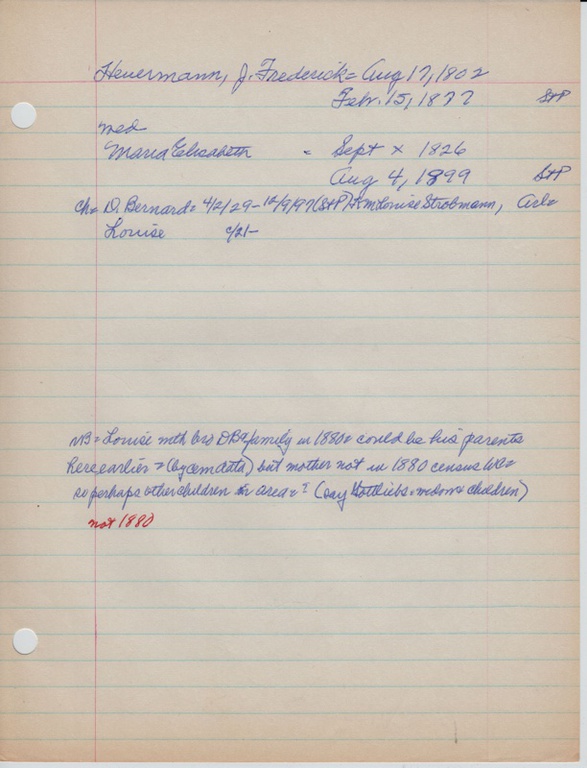 Heuermann, J. Frederick = Aug 17, 1802
Febr. 15, 1877 StP
med
Maria Elisabeth = Sept x 1826
Aug 4, 1899 StP
ch = D. Bernard = 4/2/29 - 12/9/97 (StP) + m Louise Strobmann,
Louise c/21 -
NB = Louise with bro DB & family in 1880 = could be his parents
here earlier = (by cem data) but mother not in 1880 census
so perhaps other children in area = ? (say Gottliebs = widow & children)
not 1880